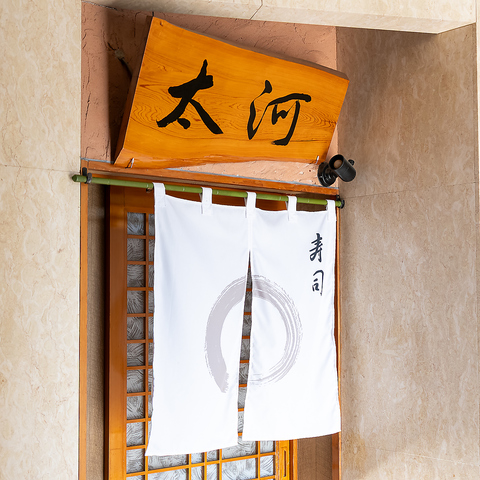 太河
寿司